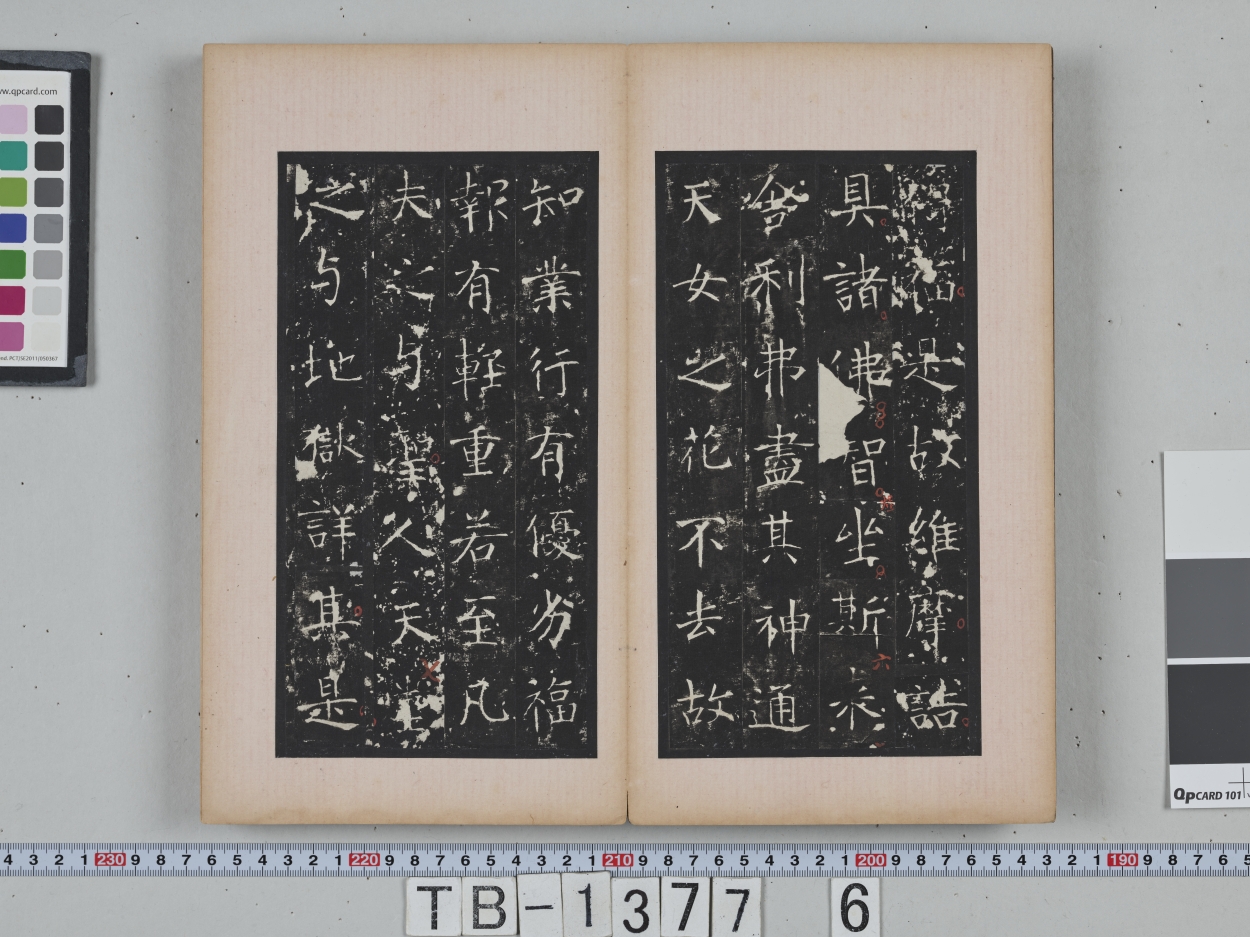 福是故維摩詰
具諸佛智坐斯来
舍利弗盡其神通
天女之花不去故
知業行有優劣福
報有輕重若至凡
夫之与聖人天堂
之与地獄詳其是
w.qpcard.com
QPCARD 101
4 3 2 1 230 9 8 7 6 5 4 3 2 1 220 9 8 7 6 5 4 3 2 1 210 9 8 7 6 5 4 3 2 1 200 9 8 7 6 5 4 3 2 1 190 9 8 7 6 5
TB-1377 6